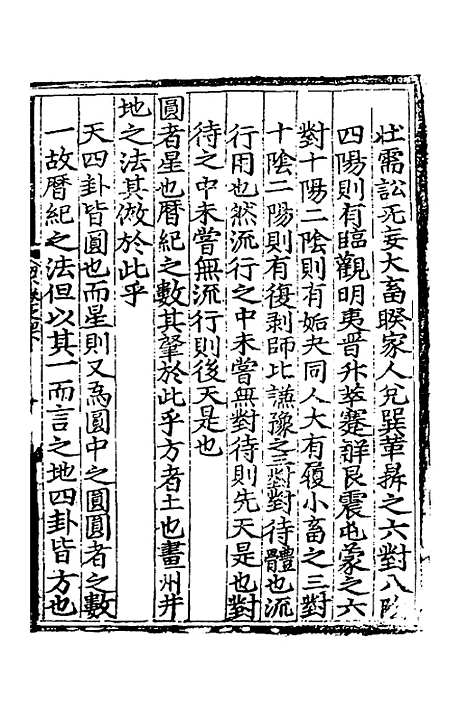 壮需訟无妄大畜睽家人兊巽革鼎之六對八陰
四陽則有臨觀明夷晋升萃蹇解艮震屯蒙之六
對十陽二陰則有姤夬同人大有履小畜之三對
十陰二陽則有復剥師比謙豫之三對對待體也流
行用也然流行之中未嘗無對待則先天是也對
待之中未嘗無流行則後天是也
圓者星也曆紀之數其肇於此乎方者土也畫州井
地之法其倣於此乎
天四卦皆圓也而星則又為圓中之圓圓者之數
一故曆紀之法但以其一而言之地四卦皆方也